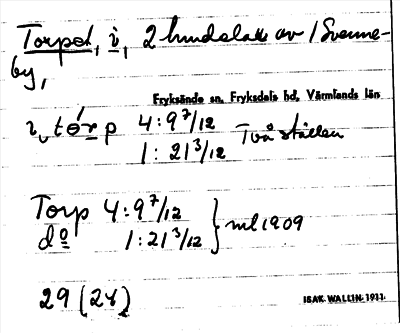 Torpet, i, 2 hundelar av / Svenne-
by,
Fryksände sn, Fryksdals hd, Värmlands län
i, tórp 4:9 7/12 Två ställen
1:21 3/12
Torp 4:9 7/12
do 1:21 3/12 } ml 1909
29 (24)
ISAK WALLIN 1911.